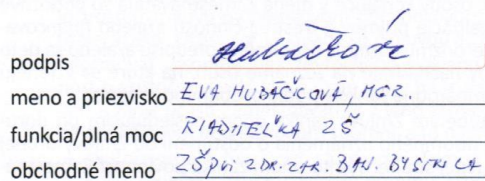 podpis Hubáčková
meno a priezvisko EVA HUBÁČKOVÁ, MGR.
funkcia/plná moc RIADITEĽKA ZŠ
obchodné meno ZŠ pri ZDR. ZAR. BAN. BYSTRICA